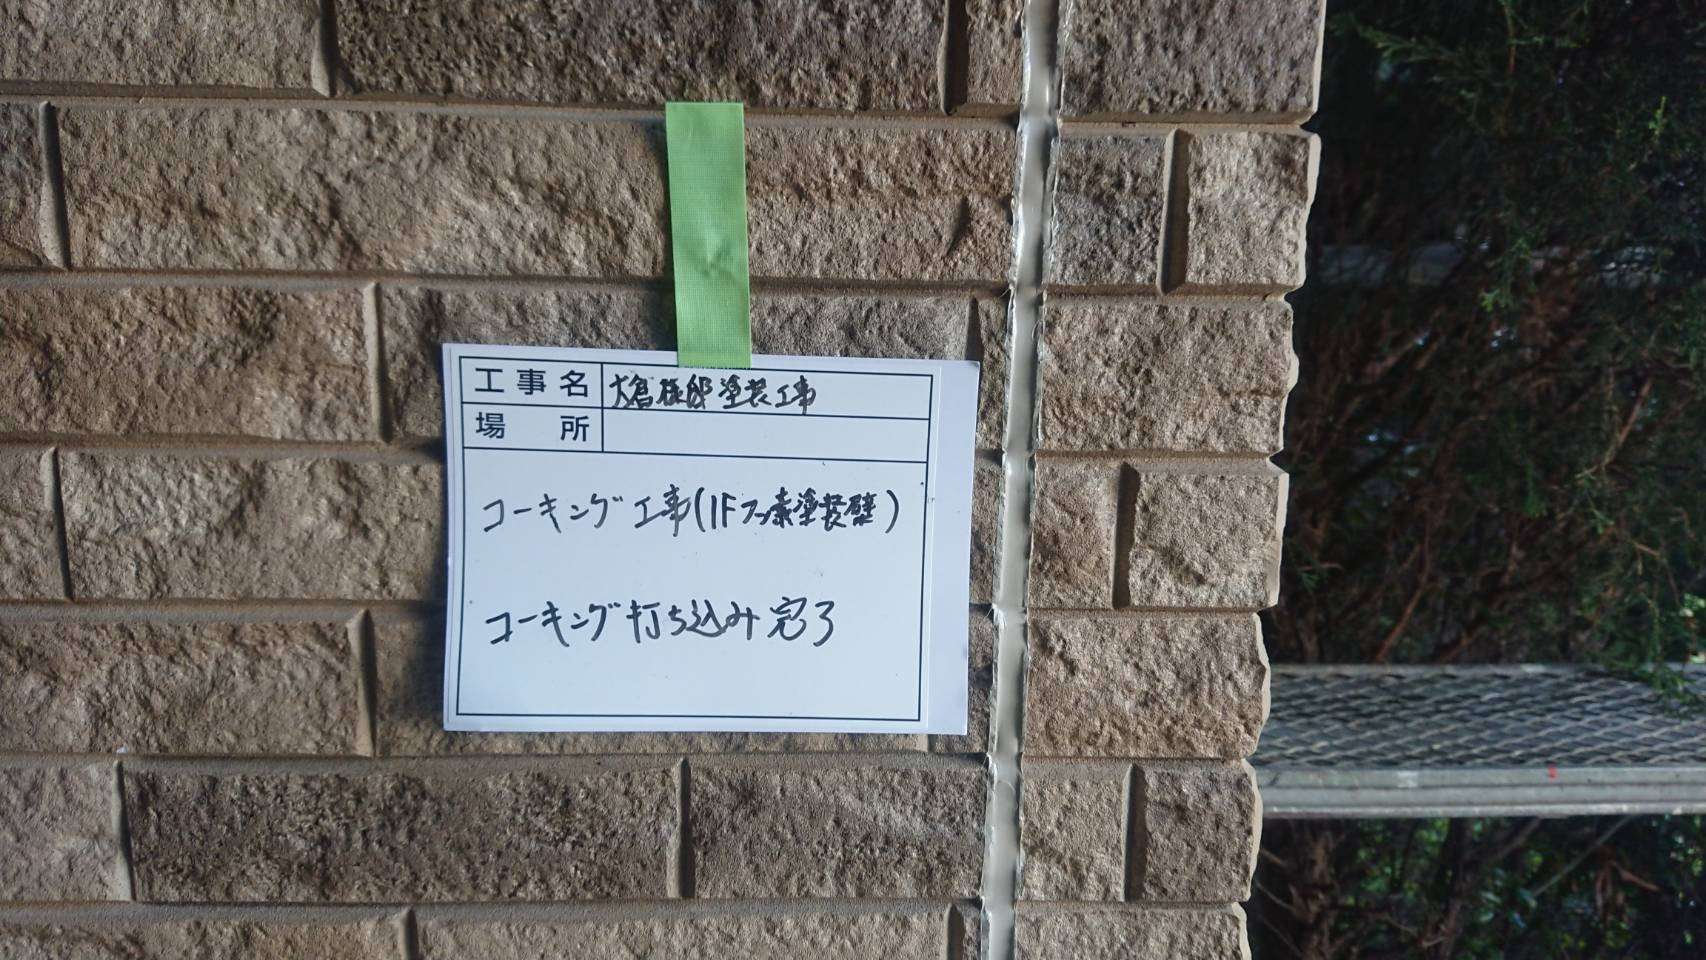 工事名 大倉様邸塗装工事
場所
コーキング工事(1Fフッ素塗装壁)
コーキング打ち込み完了